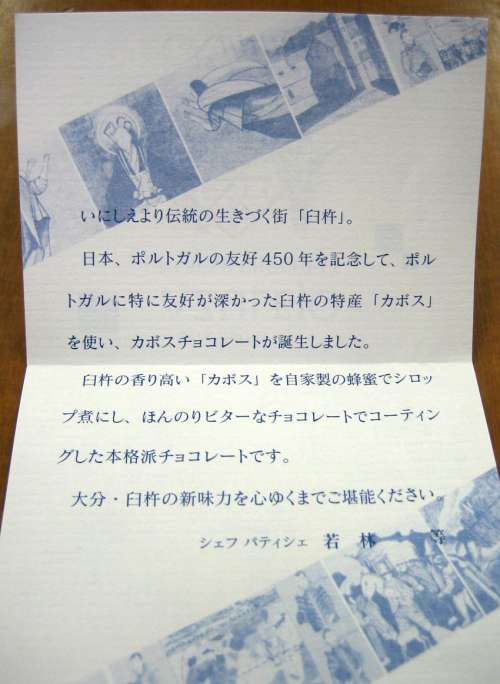 いにしえより伝統の生きづく街「臼杵」。
日本、ポルトガルの友好450年を記念して、ポル
トガルに特に友好が深かった臼杵の特産「カボス」
を使い、カボスチョコレートが誕生しました。
臼杵の香り高い「カボス」を自家製の蜂蜜でシロッ
プ煮にし、ほんのりビターなチョコレートでコーティン
グした本格派チョコレートです。
大分・臼杵の新味力を心ゆくまでご堪能ください。
シェフ パティシェ 若林 等